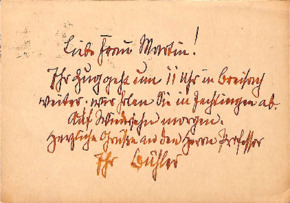 Liebe Frau Martin!
Ihr Zug geht um 11 Uhr in Breisach
weiter. wir holen Sie in Jechtingen ab.
Auf Wiedersehn morgen.
Herzliche Grüsse an den Herrn Professor
Ihr Bühler